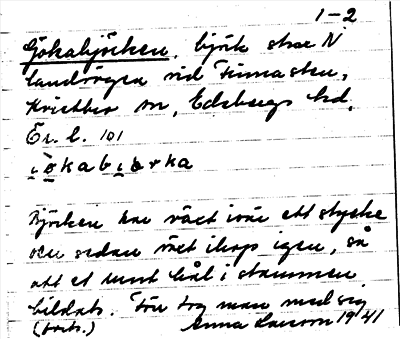 1-2
Gökabjörken, björk strax N
landsvägen vid Finnasten,
Kvistbro sn, Edsbergs hd,
Ör. l. 101
Björken har växt isär ett stycke
och sedan växt ihop igen, så
att ett runt hål i stammen
bildats. Förr tog man med sig
(forts.) Anna Larsson 1941